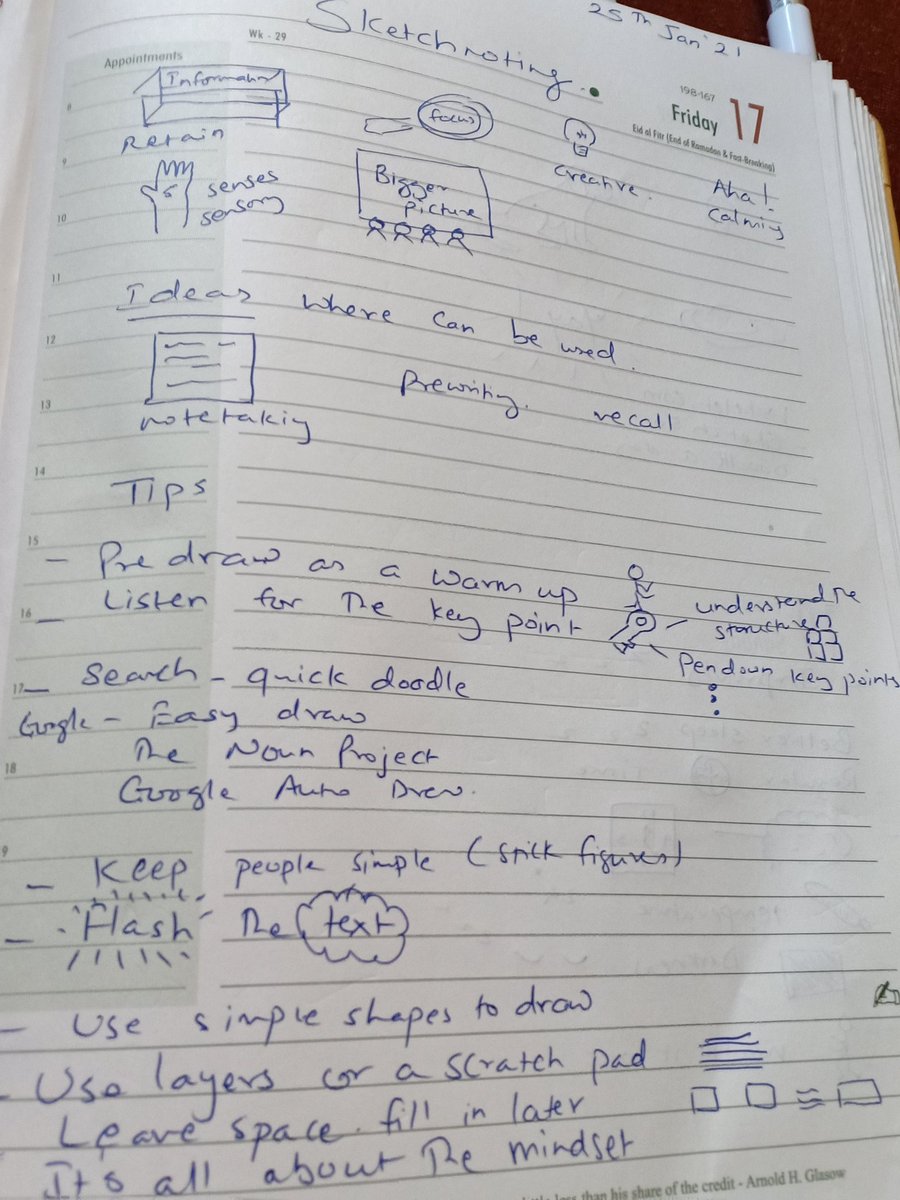 25Th Jan'21
Sketchnoting.
Wk - 29
Appointments
198-167
Friday 17
Eid al Fitr (End of Ramadan & Fast-Breaking)
8
Information
Retain
focus
creative.
Aha!
Calming
9
senses
sensory
Bigger
picture
10
11
Ideas where can be used.
12
Prewriting. recall
13
notetaking
14
Tips
15
- Pre draw as a warm up
16
- Listen for The key point
understand The
structure
Pen down key points
17
- Search - quick doodle
Google - Easy draw
The Noun Project
18
Google Auto Drew.
9
- Keep people simple (stick figures)
- Flash The text
- Use simple shapes to draw
- Use layers or a scratch pad
Leave space. fill in later
Its all about The mindset
less than his share of the credit - Arnold H. Glasow